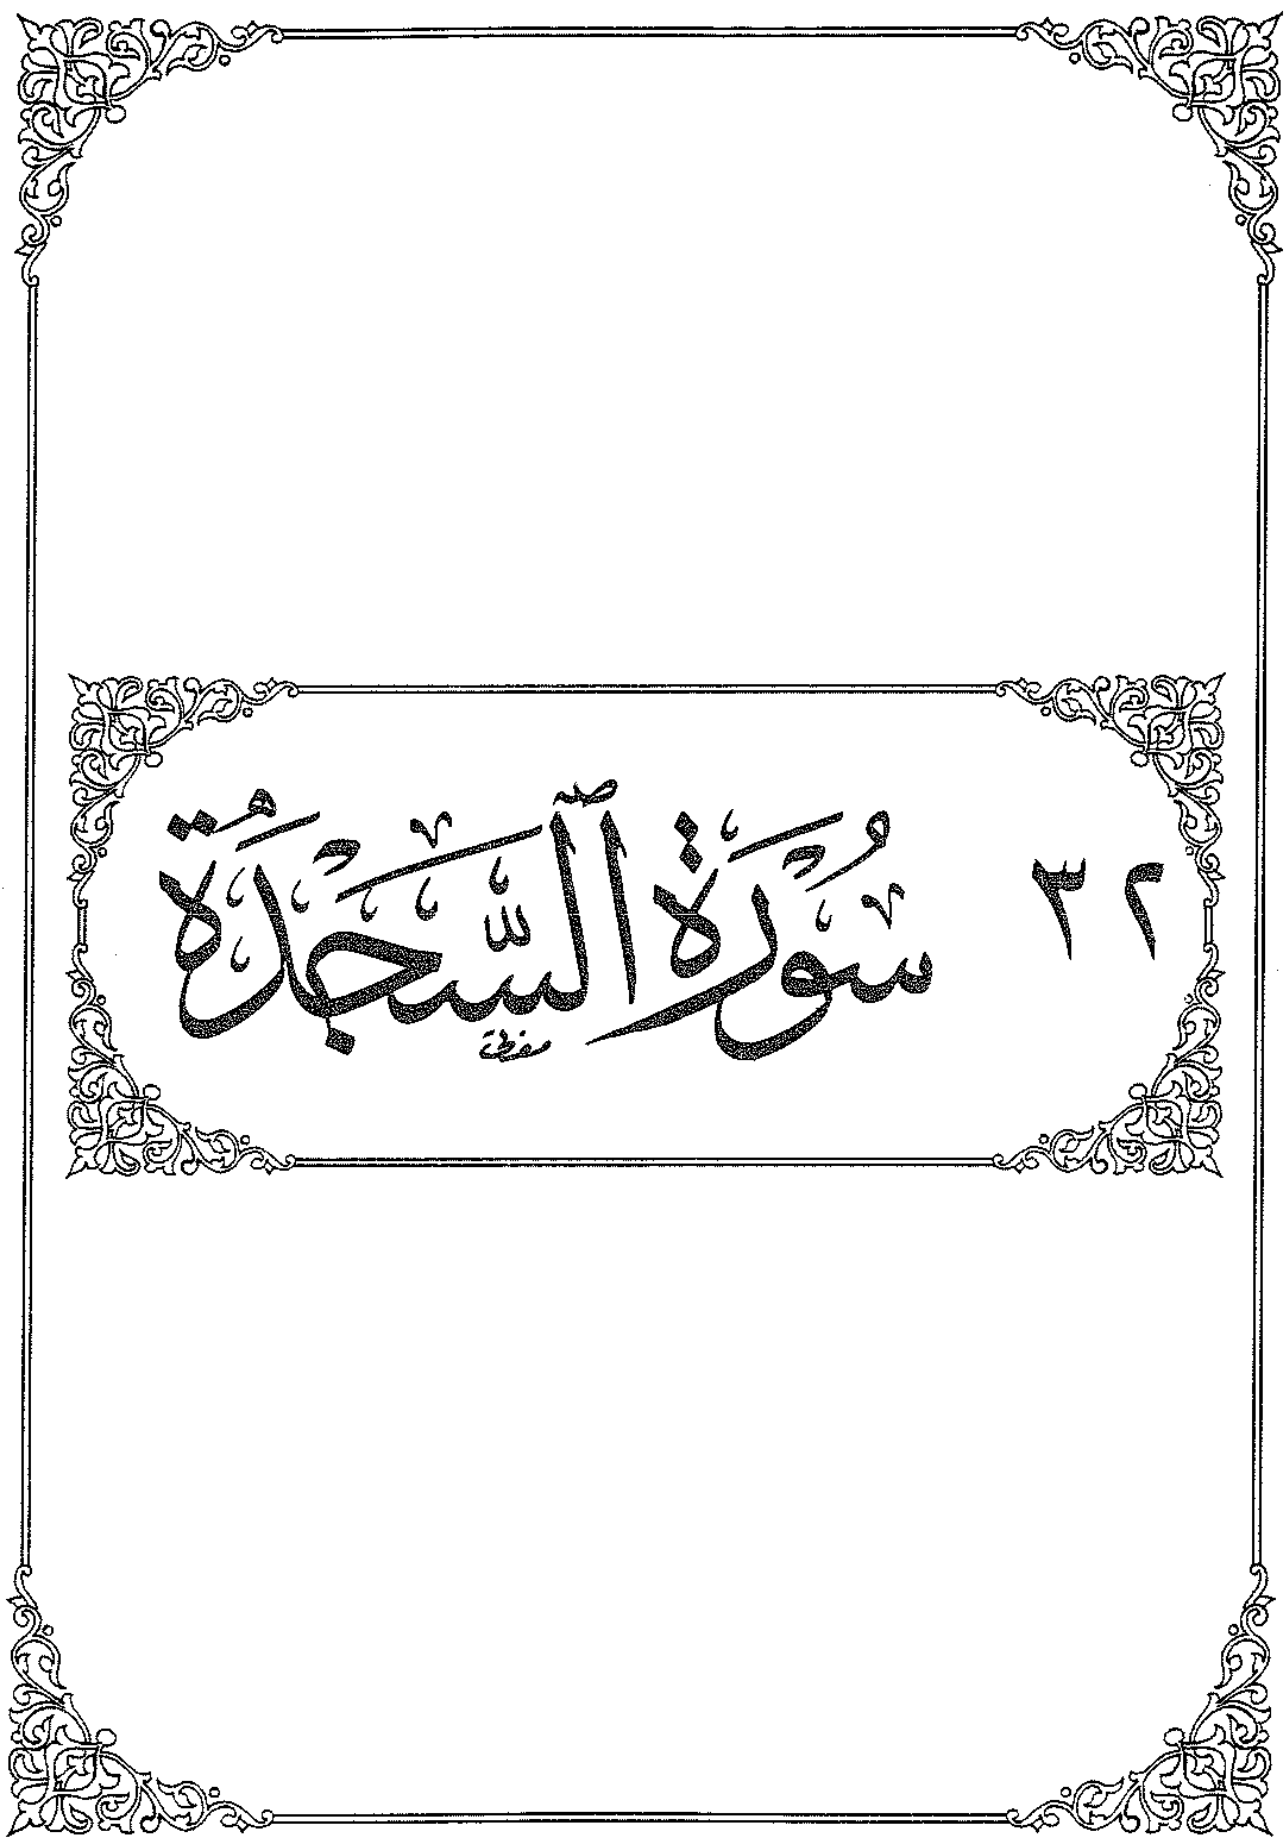 ٣٢ سُورَةُ ٱلسَّجْدَةِ